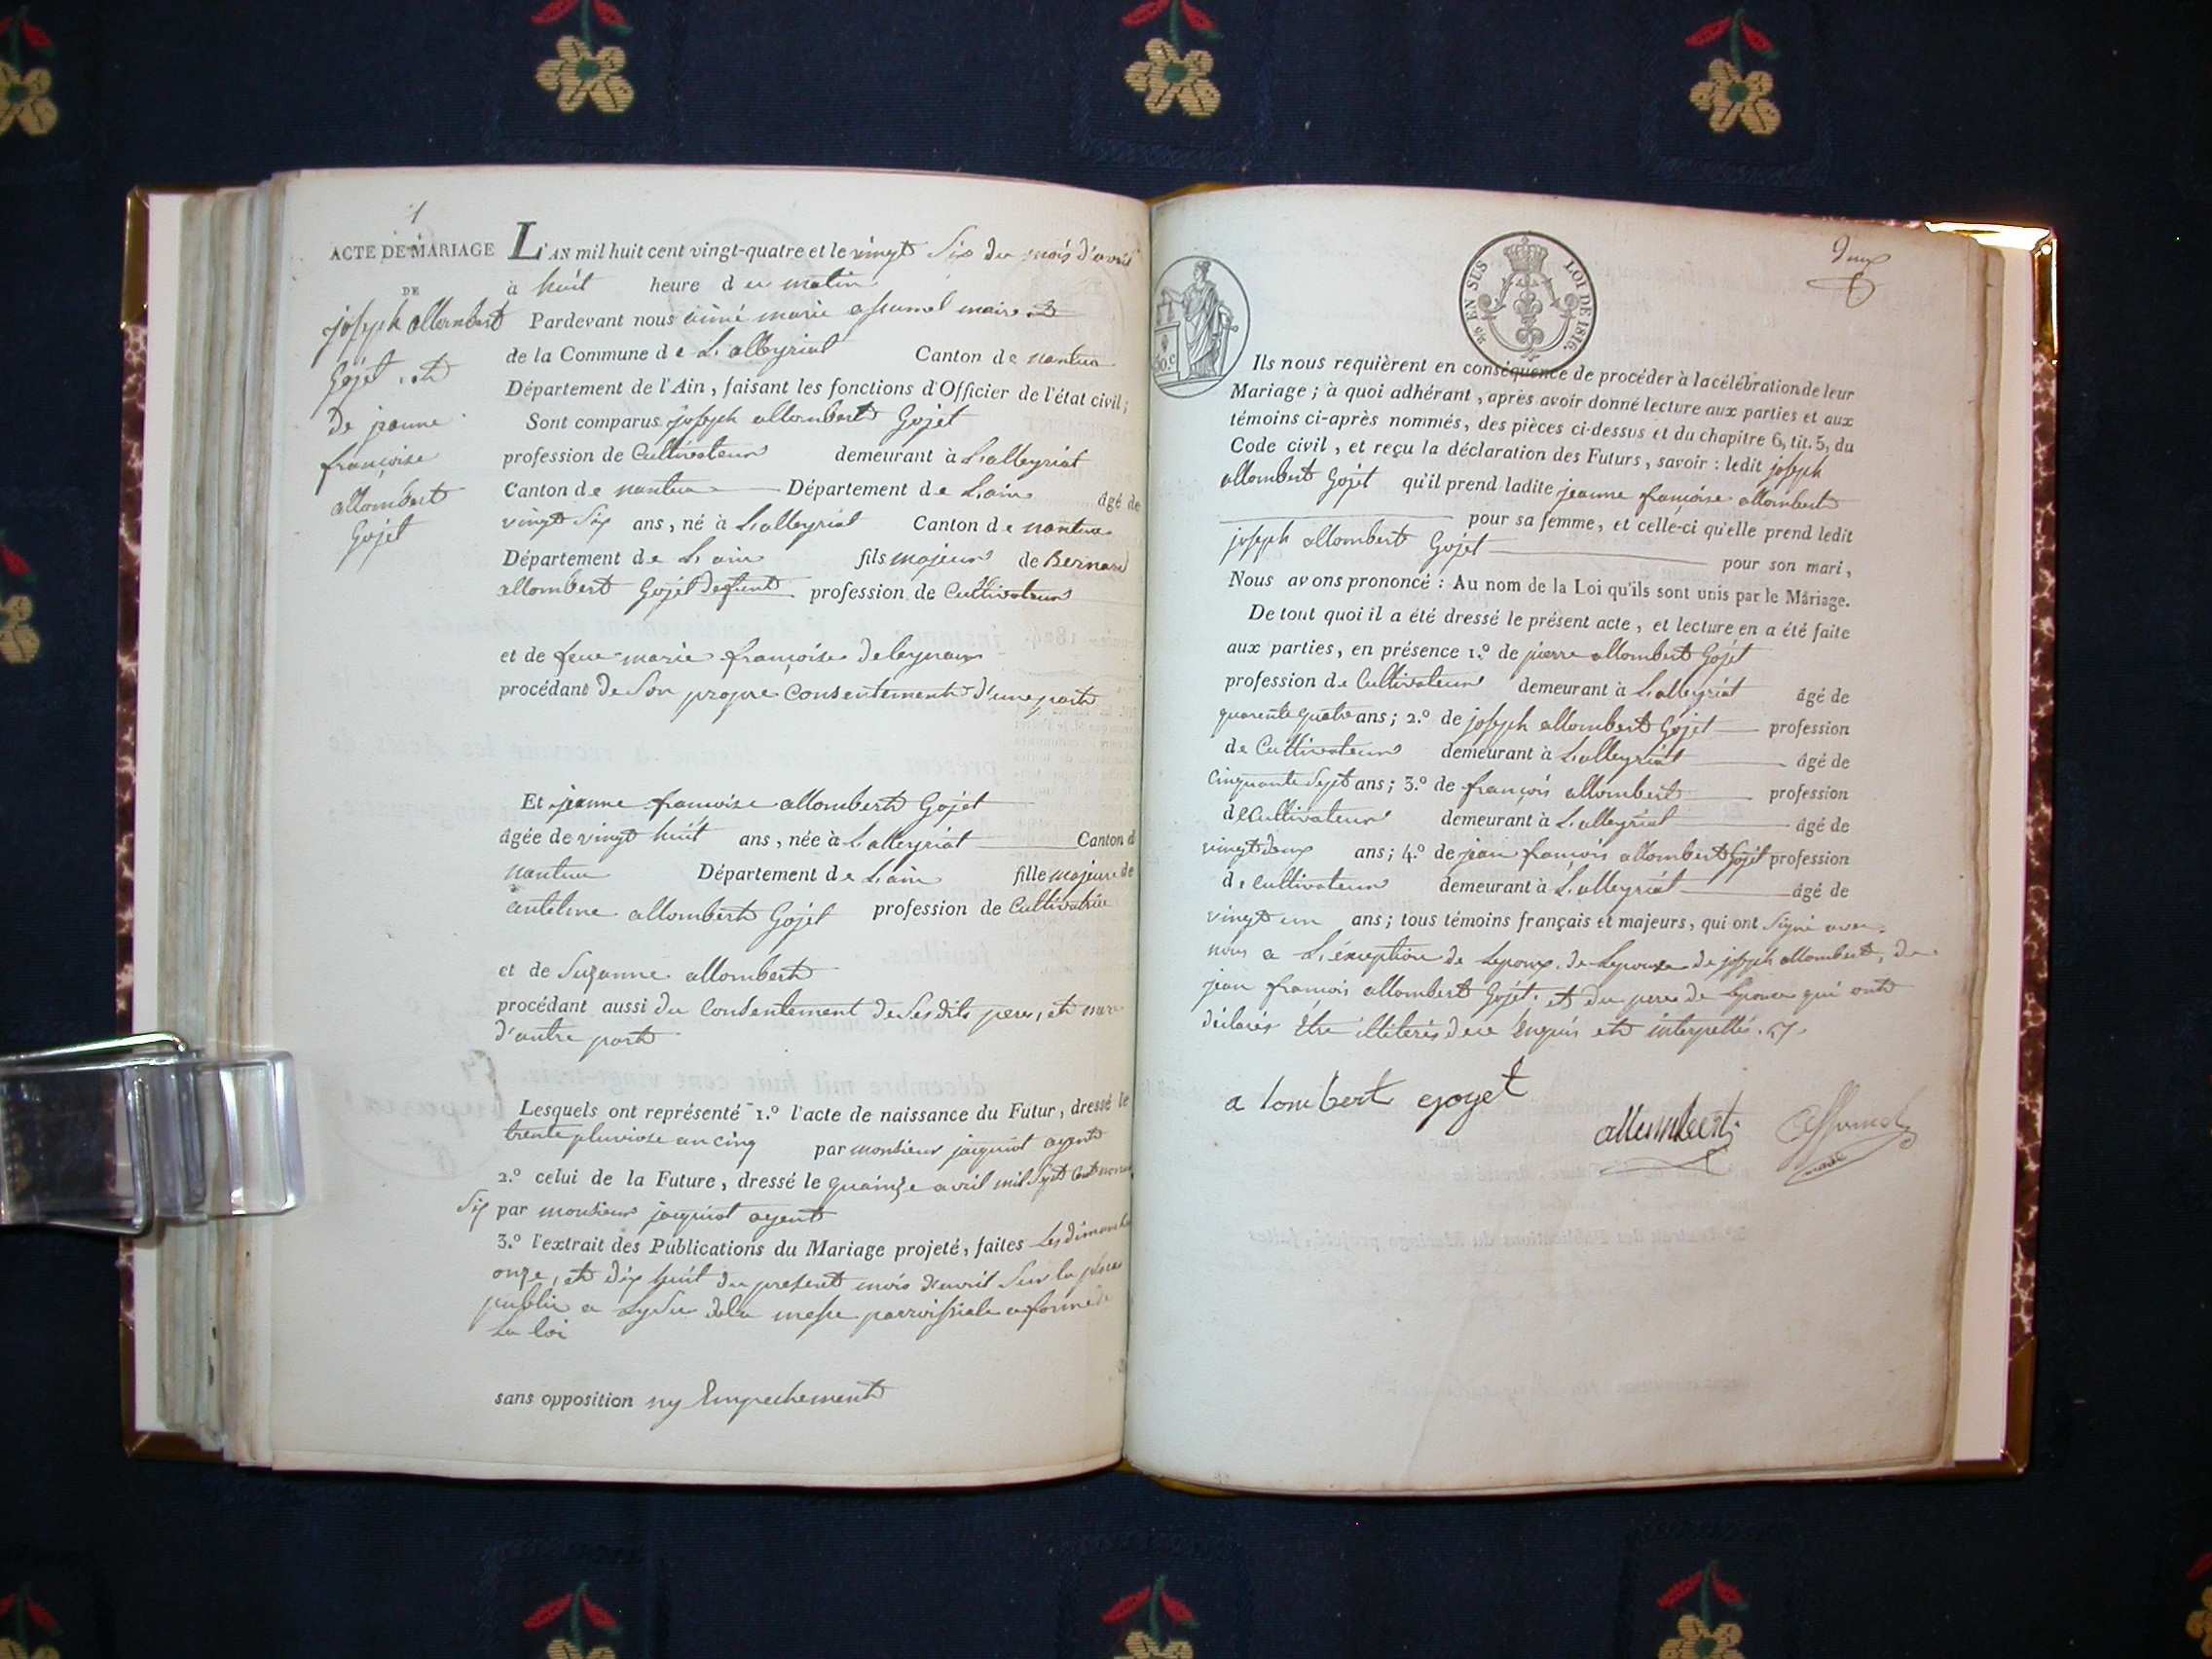 1
ACTE DE MARIAGE
DE
joseph allombert
Gojet et
de jeanne
françoise
allombert
Gojet
L'AN mil huit cent vingt-quatre et le vingt Six du mois d'avril
à huit heure du matin
Pardevant nous aimé marie assumel maire
de la Commune de L'alleyriat Canton de nantua
Département de l'Ain, faisant les fonctions d'Officier de l'état civil;
Sont comparus joseph allombert Gojet
profession de Cultivateur demeurant à L'alleyriat
Canton de nantua Département de L'ain âgé de
vingt Six ans, né à L'alleyriat Canton de nantua
Département de L'ain fils majeur de Bernard
allombert Gojet Defunt profession de Cultivateur
et de feue marie françoise
procédant de Son propre Consentement d'une part
Et jeanne francoise allombert Gojet
âgée de vingt huit ans, née à L'alleyriat Canton d
nantua Département de L'ain fille majeure de
antelme allombert Gojet profession de Cultivatrice
et de Suzanne allombert
procédant aussi du Consentement de Ses dits pere, et mere
d'autre part
Lesquels ont représenté 1.º l'acte de naissance du Futur, dressé le
trente pluviose an cinq par monsieur jacquiot agent
2.º celui de la Future, dressé le quainze avril mil Sept Cent nonante
Six par monsieur jacquiot agent
3.º l'extrait des Publications du Mariage projeté, faites Les dimanche
onze, et dix huit du present mois d'avril Sur la place
public a Lysue dela messe parroissiale a forme de
La loi
sans opposition ny Empechement
Deux
% EN SUS LOI DE 1816.
50.c
Ils nous requièrent en conséquence de procéder à la célébration de leur
Mariage; à quoi adhérant, après avoir donné lecture aux parties et aux
témoins ci-après nommés, des pièces ci-dessus et du chapitre 6, tit. 5, du
Code civil, et reçu la déclaration des Futurs, savoir: ledit joseph
allombert Gojet qu'il prend ladite jeanne françoise allombert
pour sa femme, et celle-ci qu'elle prend ledit
joseph allombert Gojet pour son mari,
Nous avons prononcé: Au nom de la Loi qu'ils sont unis par le Mariage.
De tout quoi il a été dressé le présent acte, et lecture en a été faite
aux parties, en présence 1.º de pierre allombert Gojet
profession de Cultivateur demeurant à L'alleyriat âgé de
quarente quatre ans; 2.º de joseph allombert Gojet profession
de Cultivateur demeurant à L'alleyriat âgé de
Cinquante Sept ans; 3.º de françois allombert profession
de Cultivateur demeurant à L'alleyriat âgé de
vingt deux ans; 4.º de jean françois allombert Gojet profession
de Cultivateur demeurant à L'alleyriat âgé de
vingt un ans; tous témoins français et majeurs, qui ont Signé avec
nous a L'exception de Lepoux, de Lepouze de joseph allombert, de
jean françois allombert Gojet, et du pere de Lepouse qui ont
declarés être illiterés de ce Enquis et interpellés.
a lombert gojet
allembert
assumel
maire